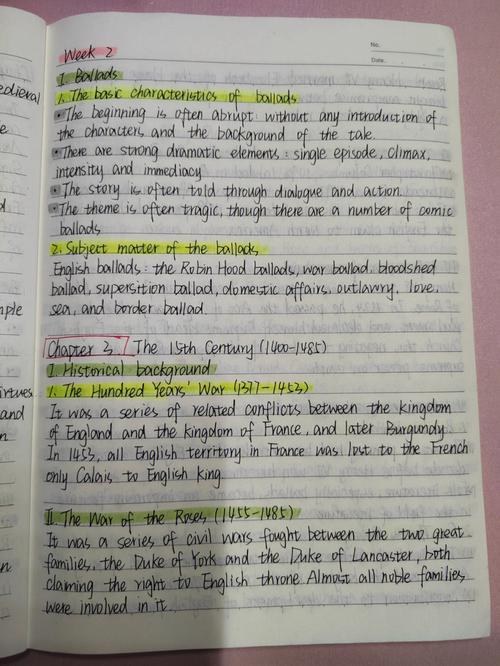 No.
Date.
Week 2
I. Ballads
1. The basic characteristics of ballads
• The beginning is often abrupt without any introduction of
the characters and the background of the tale.
• There are strong dramatic elements: single episode, climax,
intensity and immediacy
• The story is often told through dialogue and action.
• The theme is often tragic, though there are a number of comic
ballads
2. Subject matter of the ballads.
English ballads: the Robin Hood ballads, war ballad, bloodshed
ballad, supersition ballad, domestic affairs, outlawry, love,
sea, and border ballad.
Chapter 3 The 15th Century (1400-1485)
I. Historical background
1. The Hundred Years' War (1377-1453)
It was a series of related conflicts between the kingdom
of England and the kingdom of France, and later Burgundy.
In 1453, all English territory in France was lost to the French
only Calais to English king.
II. The War of the Roses (1455-1485)
It was a series of civil wars fought between the two great
families, the Duke of York and the Duke of Lancaster, both
claiming the right to English throne. Almost all noble families
were involved in it.
edieval
mple
irtues
and